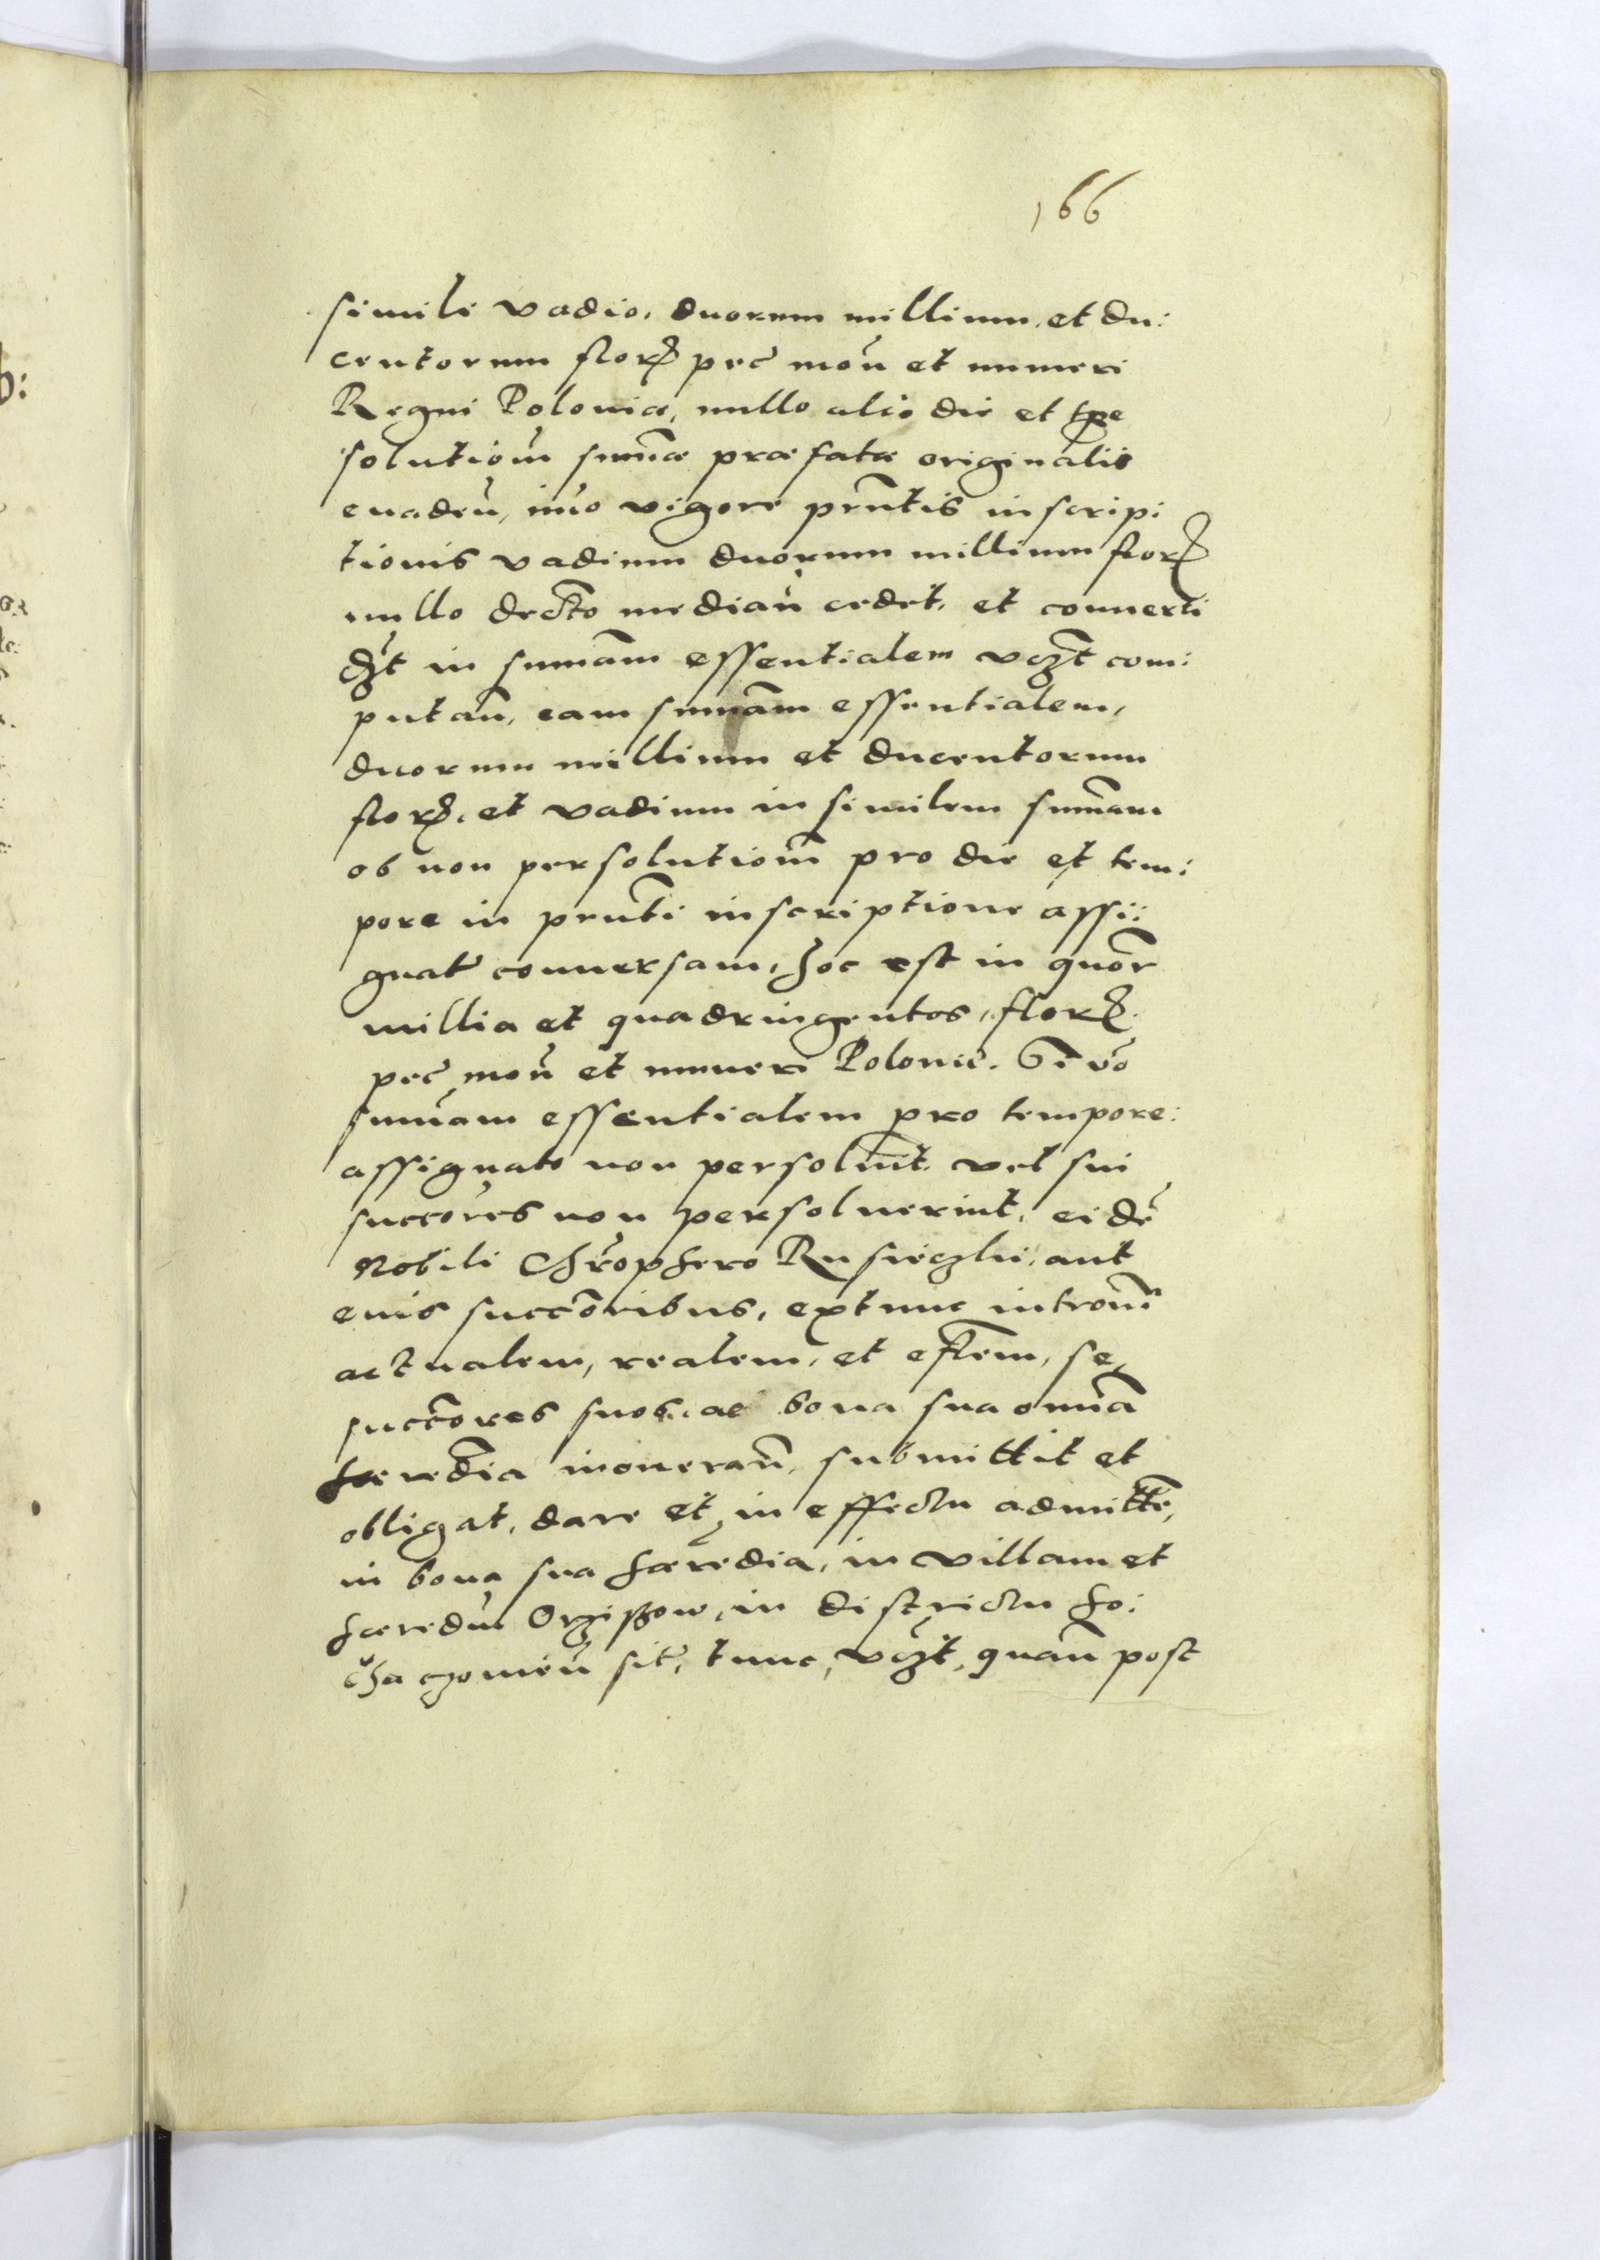 166
simili vadio, duorum millium, et du:
centorum floꝝ pec̃ moñ et numeri
Regni Poloniæ, nullo alio die et tp̃e
solutioñ sum̃æ præfatæ originalis
euadeñ, im̃o vigore pr̃ntis inscrip:
tionis vadium duorum millium floꝝ
nullo decr̃to mediañ cedet, et conuerti
dz̃t in sum̃am essentialem vcz̃t com:
putañ, eam sum̃am essentialem,
duorum millium et ducentorum
floꝝ, et vadium in similem sum̃am
ob non persolutioñ pro die et tem:
pore in pr̃nti inscriptione assi:
gnat̃ conuersam, hoc est in quõr
millia et quadringentos, floꝝ
pec̃ moñ et numeri Polonic̃. Si võ
sum̃am essentialem pro tempore
assignato non persoluit̃, vel sui
succõres non persoluerint, eidẽ
Nobili Chr̃ophero Rusieczki, aut
euis succõribus, extunc introm̃
actualem, realem, et eff̃em, se
succõres suos, ac bona sua om̃ia
hæredĩa inonerañ, submittit et
obligat, dare et in effectu admittẽ,
in bona sua hæredia, in villam et
hæredũ Orzissow, in districtu So:
chaczomieñ sit̃, tunc, vcz̃t, quam̃ post